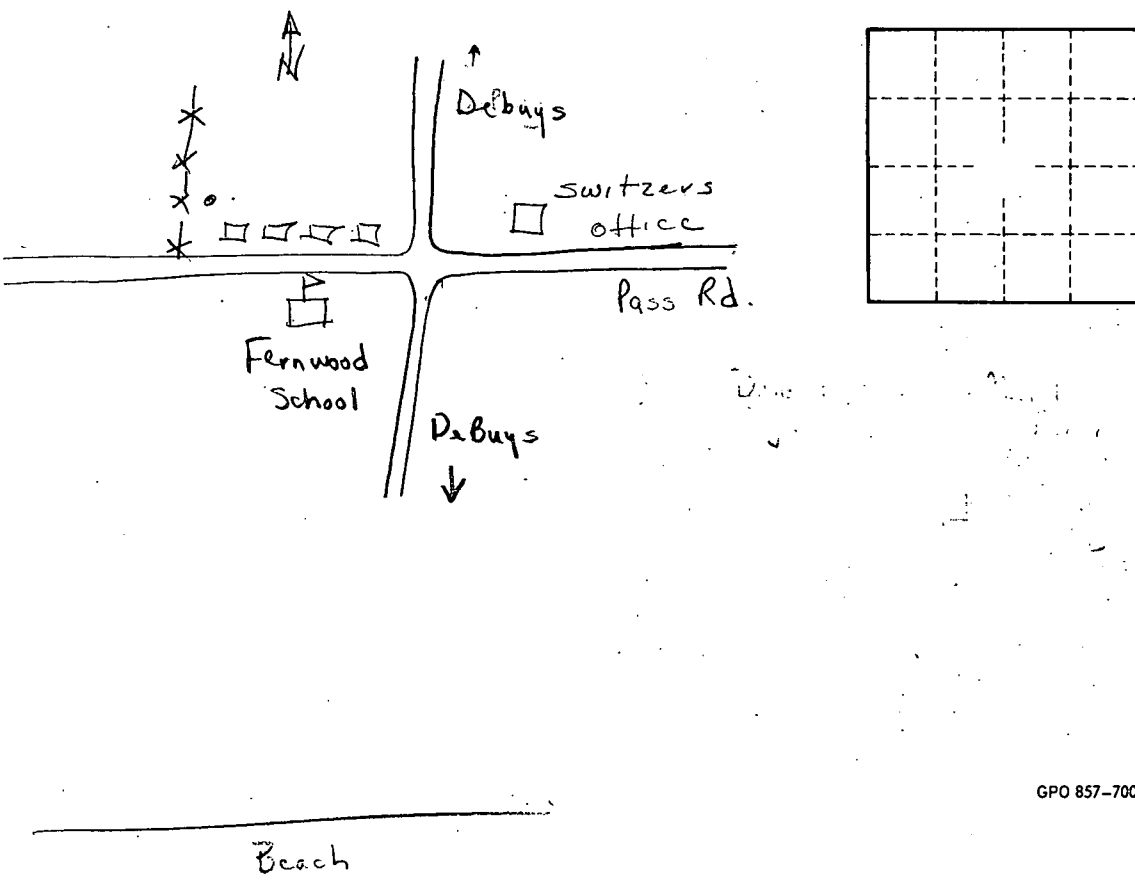 N
Debuys
Switzers
office
Pass Rd.
Fernwood
School
DeBuys
GPO 857-700
Beach